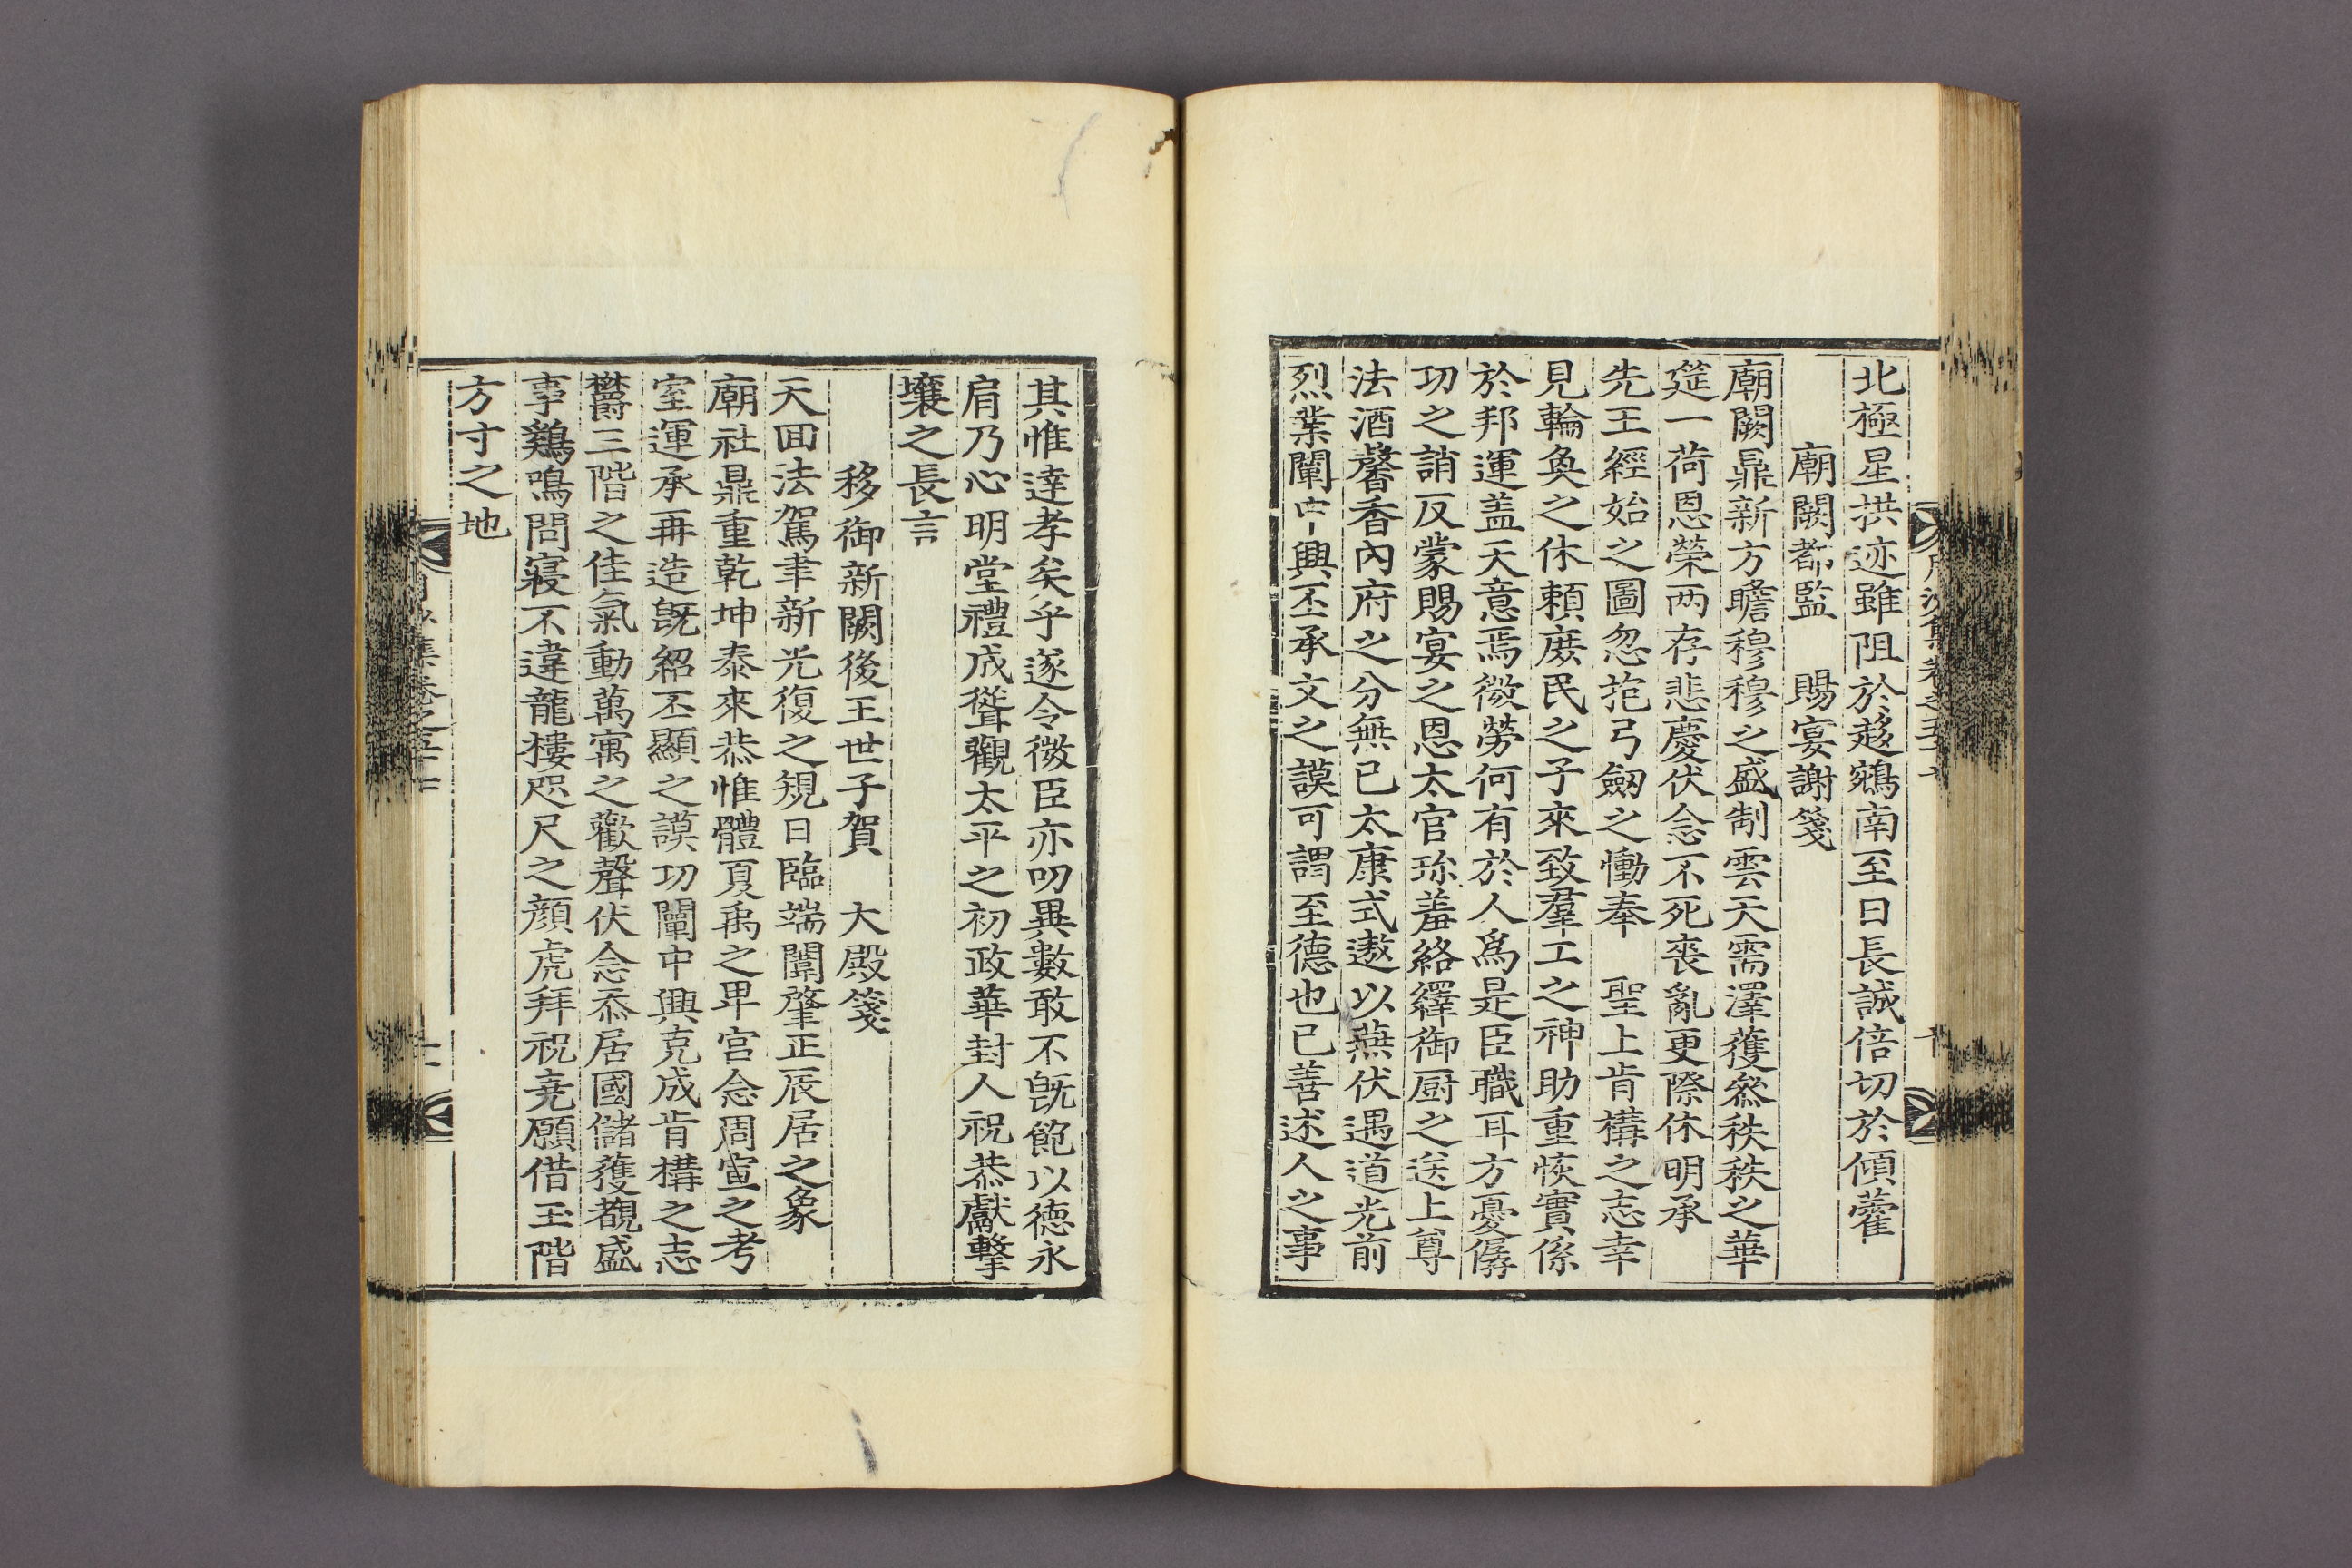 北極星拱迹雖阻於趍鵷南至日長誠倍切於傾藿
廟闕都監　賜宴謝箋
廟闕鼎新方瞻穆穆之盛制雲天需澤獲叅秩秩之華
筵一荷恩榮兩存悲慶伏念不死喪亂更際休明承
先王經始之圖忽抱弓劒之慟奉　聖上肯構之志幸
見輪奐之休賴庶民之子來致羣工之神助重恢實係
於邦運盖天意焉微勞何有於人爲是臣職耳方憂僝
功之誚反蒙賜宴之恩太官珎羞絡繹御厨之送上尊
法酒馨香內府之分無已太康式遨以燕伏遇道光前
烈業闡中興丕承文之謨可謂至德也已善述人之事
其惟達孝矣乎遂令微臣亦叨異數敢不旣飽以德永
肩乃心明堂禮成聳觀太平之初政華封人祝恭獻擊
壤之長言
移御新闕後王世子賀　大殿箋
天回法駕聿新光復之䂓日臨端闈肇正辰居之象
廟社鼎重乾坤泰來恭惟體夏禹之卑宮念周宣之考
室運承再造旣紹丕顯之謨功闡中興克成肯構之志
欝三階之佳氣動萬寓之歡聲伏念忝居國儲獲覩盛
事鷄鳴問寢不違龍樓咫尺之顔虎拜祝堯願借玉階
方寸之地